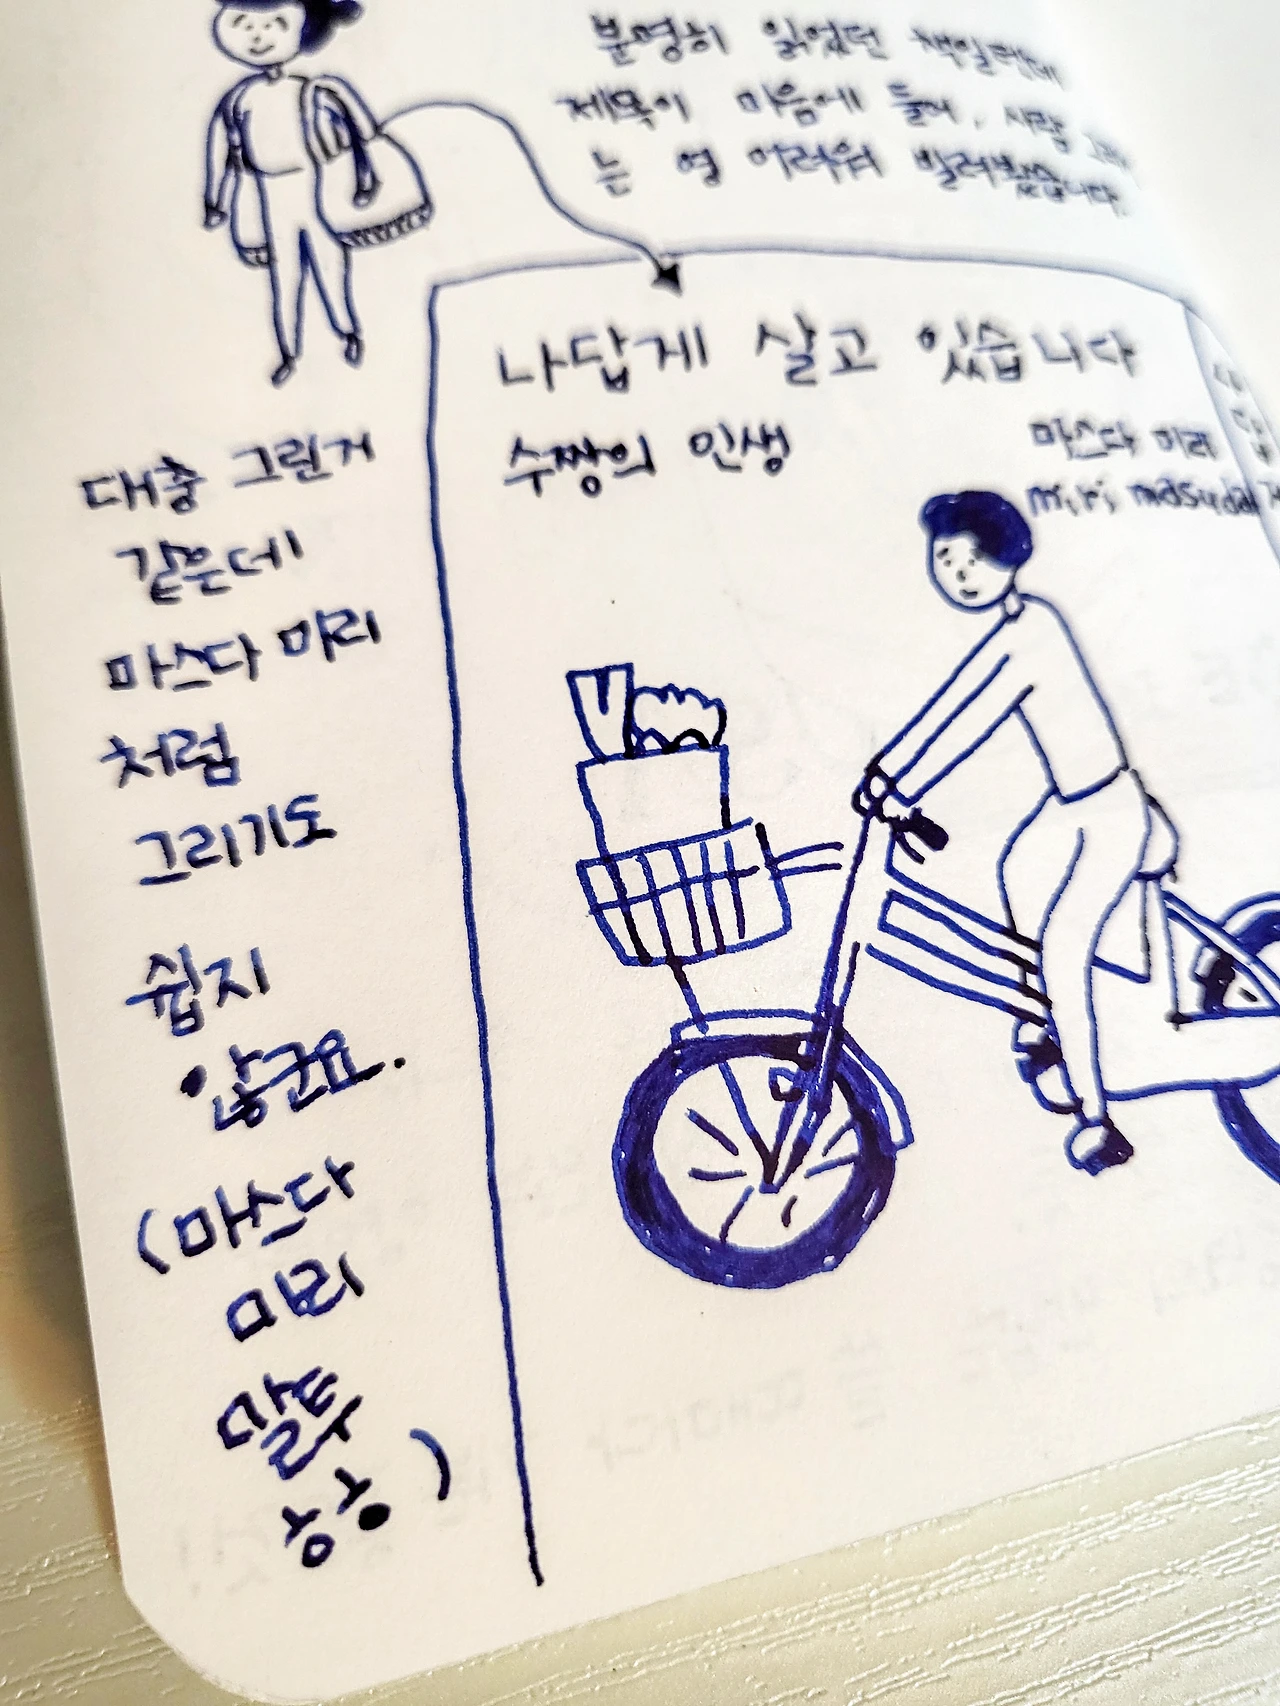 분명히 읽었던 책일텐데
제목이 마음에 들어, 사람
는 영 어려워 빌려봤습니다.
나답게 살고 있습니다
수짱의 인생
마스다 미리
miri masuda
대충 그린거
같은데
마스다 미리
처럼
그리기도
쉽지
않군요.
(마스다
미리
말투
ㅎㅎ)